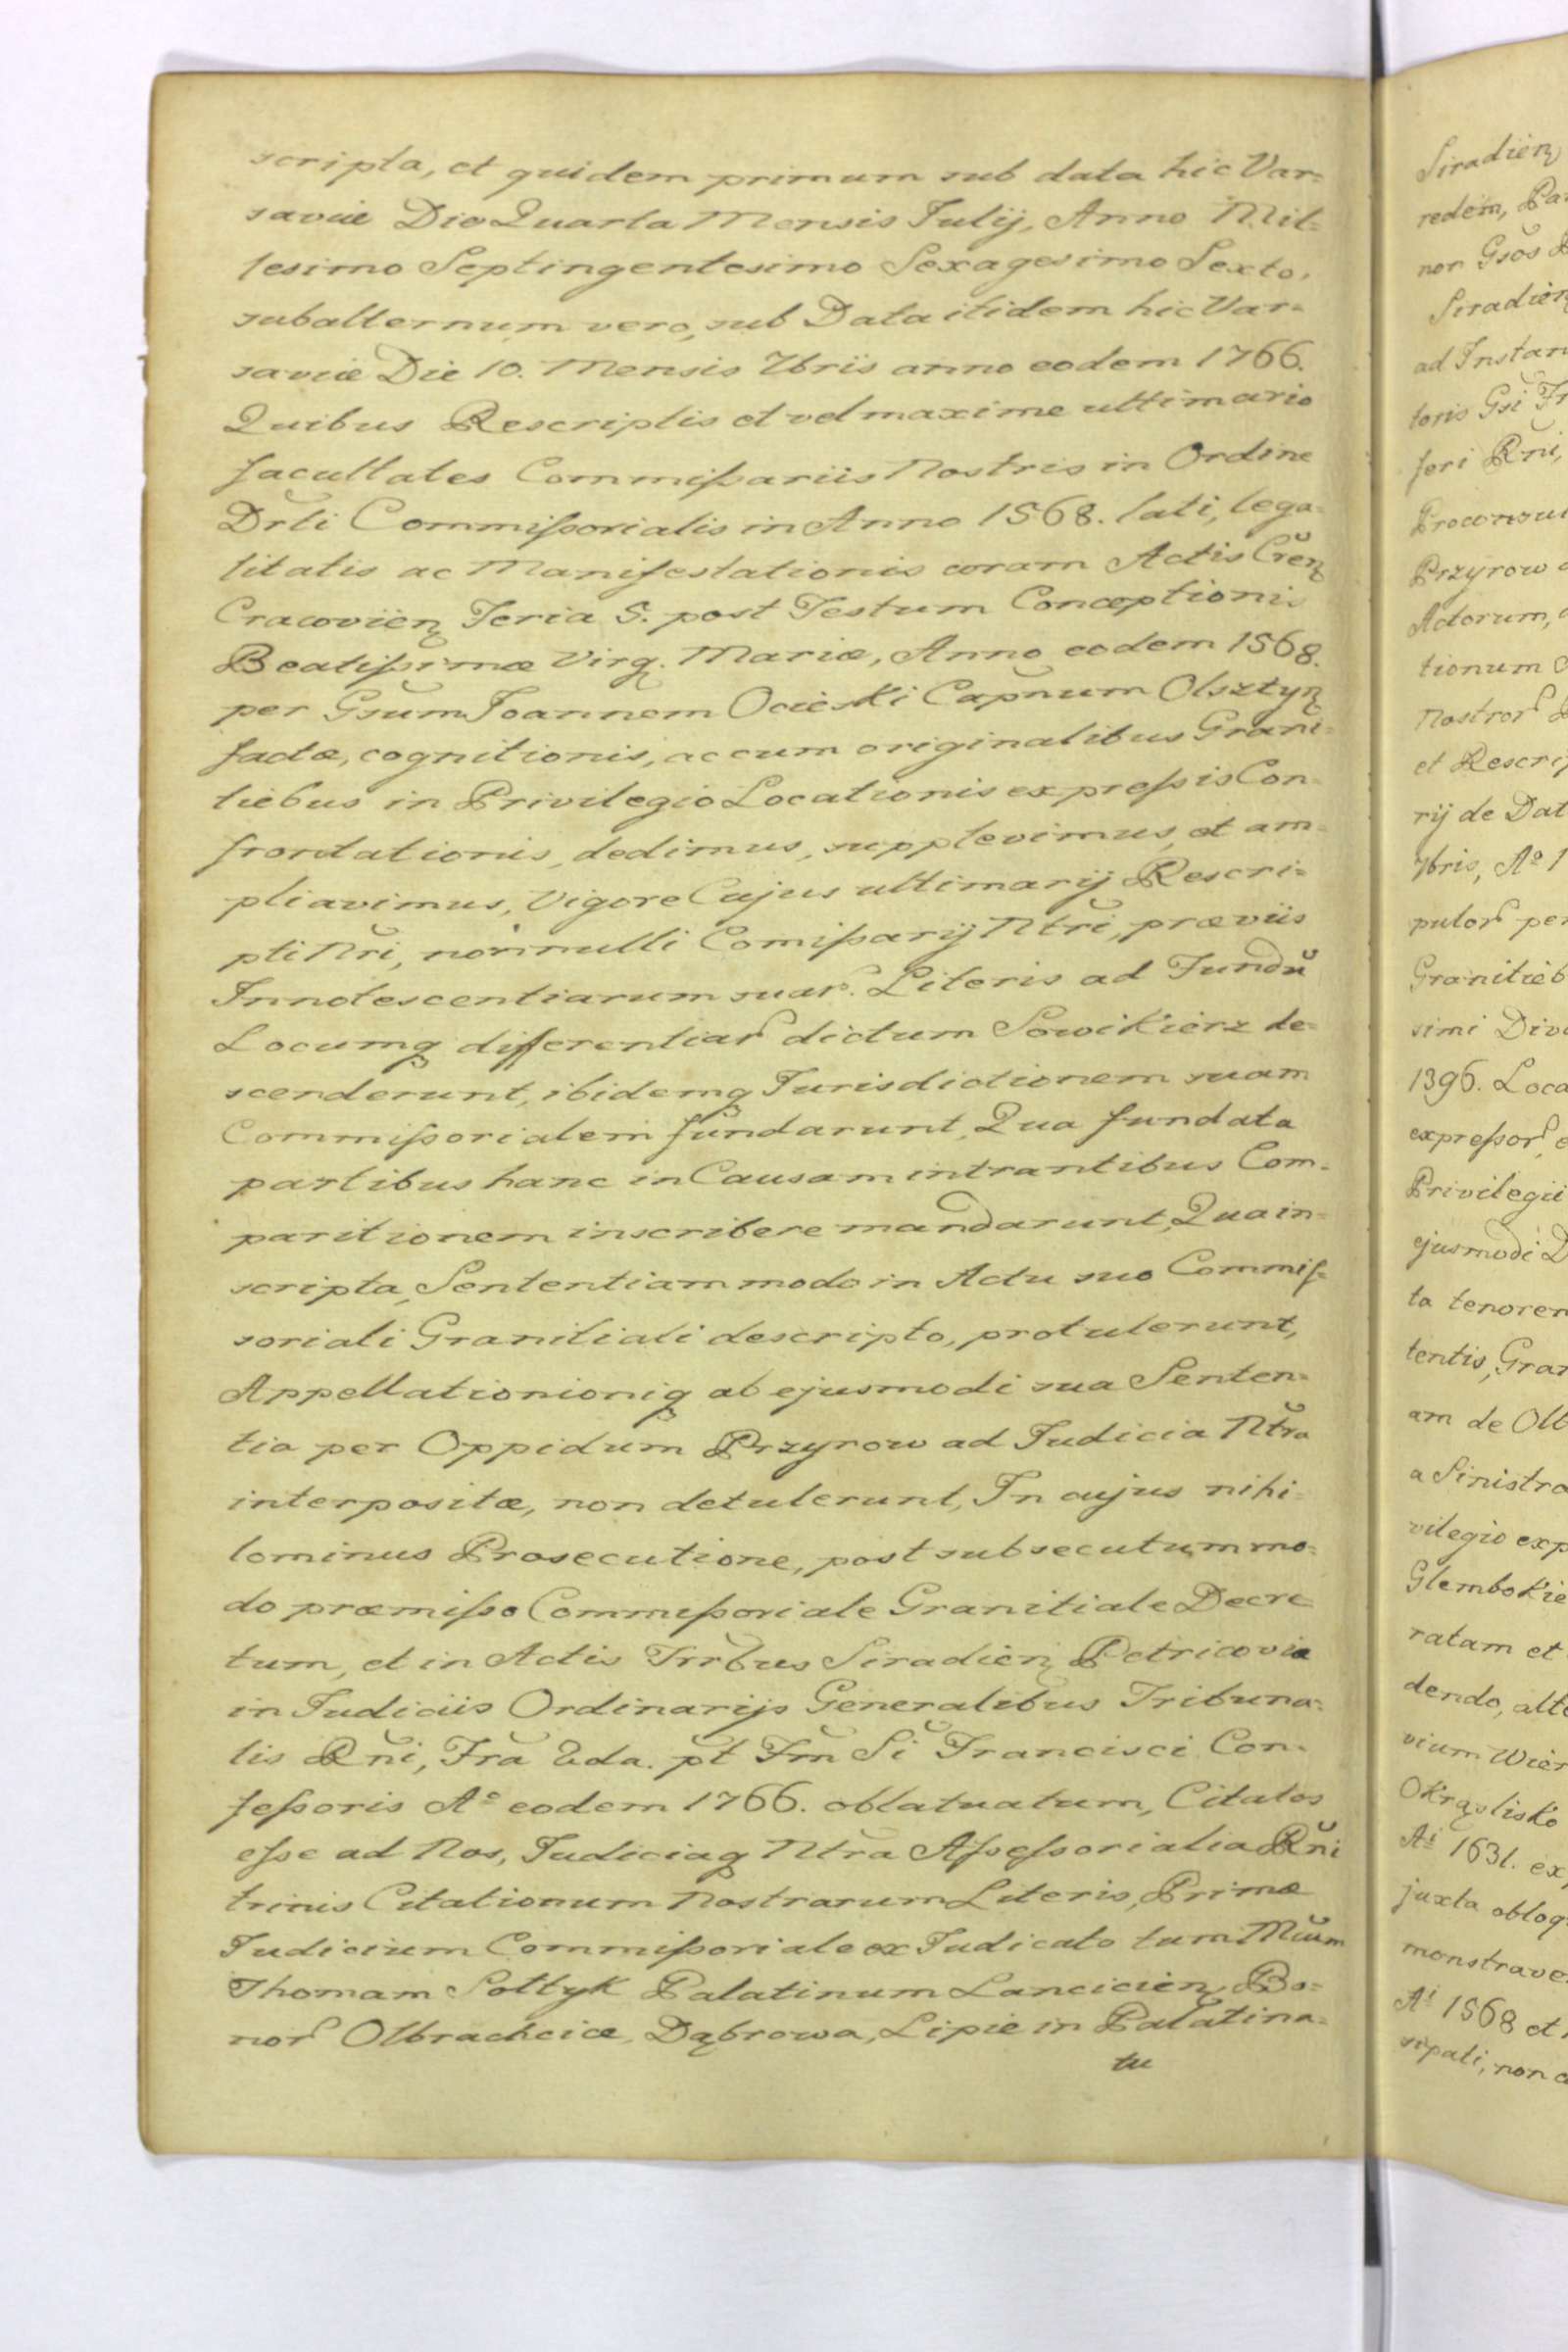 scripta, et quidem primum sub data hic Var=
saviæ Die Quarta Mensis Julij, Anno Mil=
lesimo Septingentesimo Sexagesimo Sexto,
subalternum vero, sub Data itidem hic Var=
saviæ Die 10. Mensis 7bris anno eodem 1766.
Quibus Rescriptis et vel maxime ultimario
facultates Commißariis Nostris in Ordine
Drti Commißorialis in Anno 1568. lati, lega=
litatis ac Manifestationis coram Actis Cren̄
Cracovien̄ Feria 5. post Festum Conceptionis
Beatißimæ Virg. Mariæ, Anno eodem 1568.
per Gsum Joannem Ocieski Capnum Olsztyn̄
factæ, cognitionis, ac cum originalibus Grani=
tiebus in Privilegio Locationis expreßis Con=
frontationis, dedimus, supplevimus, et am=
pliavimus, Vigore Cujus ultimarij Rescri=
pti Nri, nonnulli Comißarij Ntri, præviis
Innotescentiarum suar. Literis ad Fundū
Locumq differentiar dictum Sowi Kierz de=
scenderunt, ibidemq Jurisdictionem suam
Commißorialem fundarunt, Qua fundata
partibus hanc in Causam intrantibus Com=
paritionem inscribere mandarunt, Qua in=
scripta, Sententiam modo in Actu suo Commis=
soriali Granitiali descripto, protulerunt,
Appellationioniq ab ejusmodi sua Senten=
tia per Oppidum Przyrow ad Judicia Ntra
interpositæ, non detulerunt, In cujus nihi=
lominus Prosecutione, post subsecutum mo=
do præmißo Commißoriale Granitiale Decre=
tum, et in Actis Trrbus Siradien̄ Petricoviæ
in Judiciis Ordinarijs Generalibus Tribuna=
lis Rni, Fra 2da. pt Fm Si Francisci Con=
feßoris Aº eodem 1766. oblatuatum, Citatos
eße ad Nos, Judiciaq Ntra Aßeßorialia Rni
trinis Citationum Nostrarum Literis, Primæ
Judicium Commißoriale ex Judicato tum Mcum
Thomam Sołtyk Palatinum Lancicien̄, Bo=
nor Olbrachcice, Dąbrowa, Lipie in Palatina=
tu
Siradien̄
redem,
nor Gsos
Siradien̄
ad Instan
toris Gsi
feri Rni,
Proconsul
Przyrow
Actorum,
tionum
Nostror
et Rescrip
rij de Dat
7bris, Aº 1
putor per
Granitieb
simi Div
1396. Loca
expreßor
Privilegii
ejusmodi D
ta tenorem
tentis, Gran
am de Olb
a Sinistra
vilegio exp
Glembokie
ratam et
dendo, alte
vium Wier
Okrąslisko
Ai 1631. ex
juxta obloq
monstrave
Ai 1568 et
sipati, non